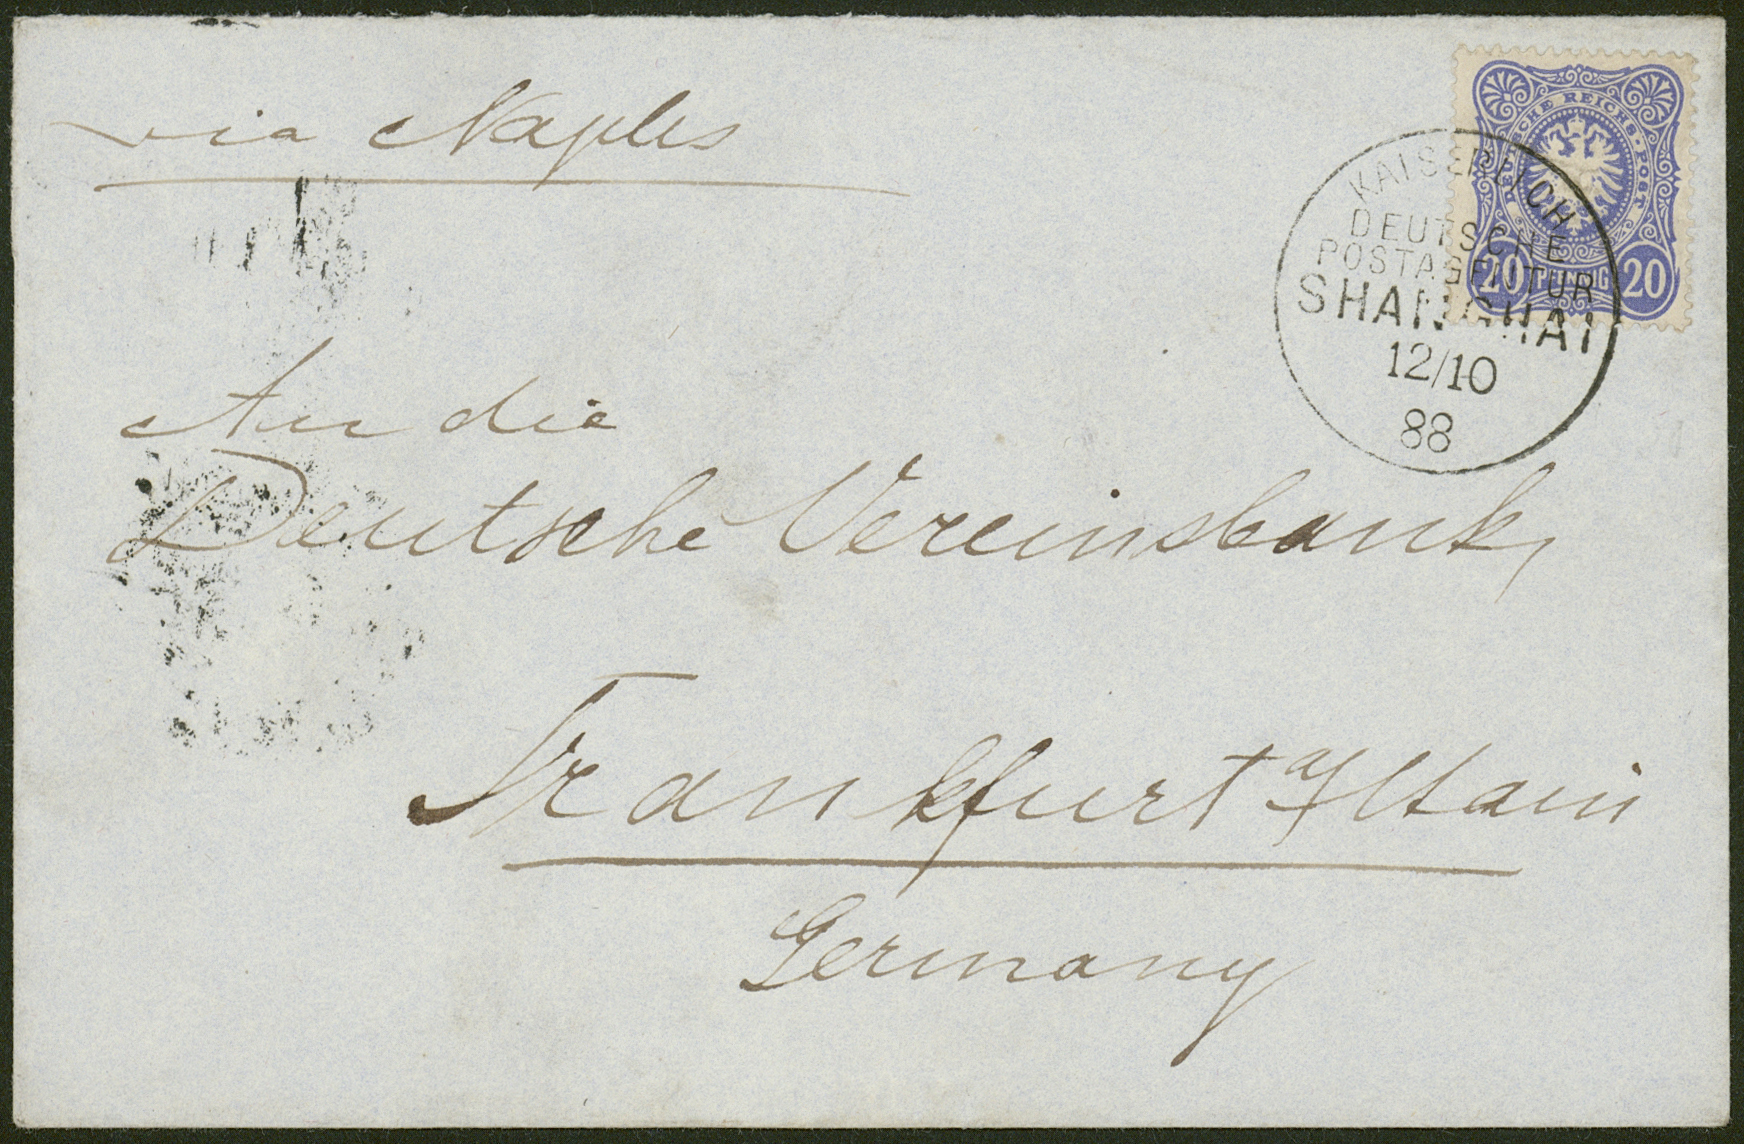 via Naples
DEUTSCHE REICHS-POST
20 PFENNIG 20
KAISERLICH
DEUTSCHE
POSTAGENTUR
SHANGHAI
12/10
88
An die
Deutsche Vereinsbank,
Frankfurt a/Main
Germany